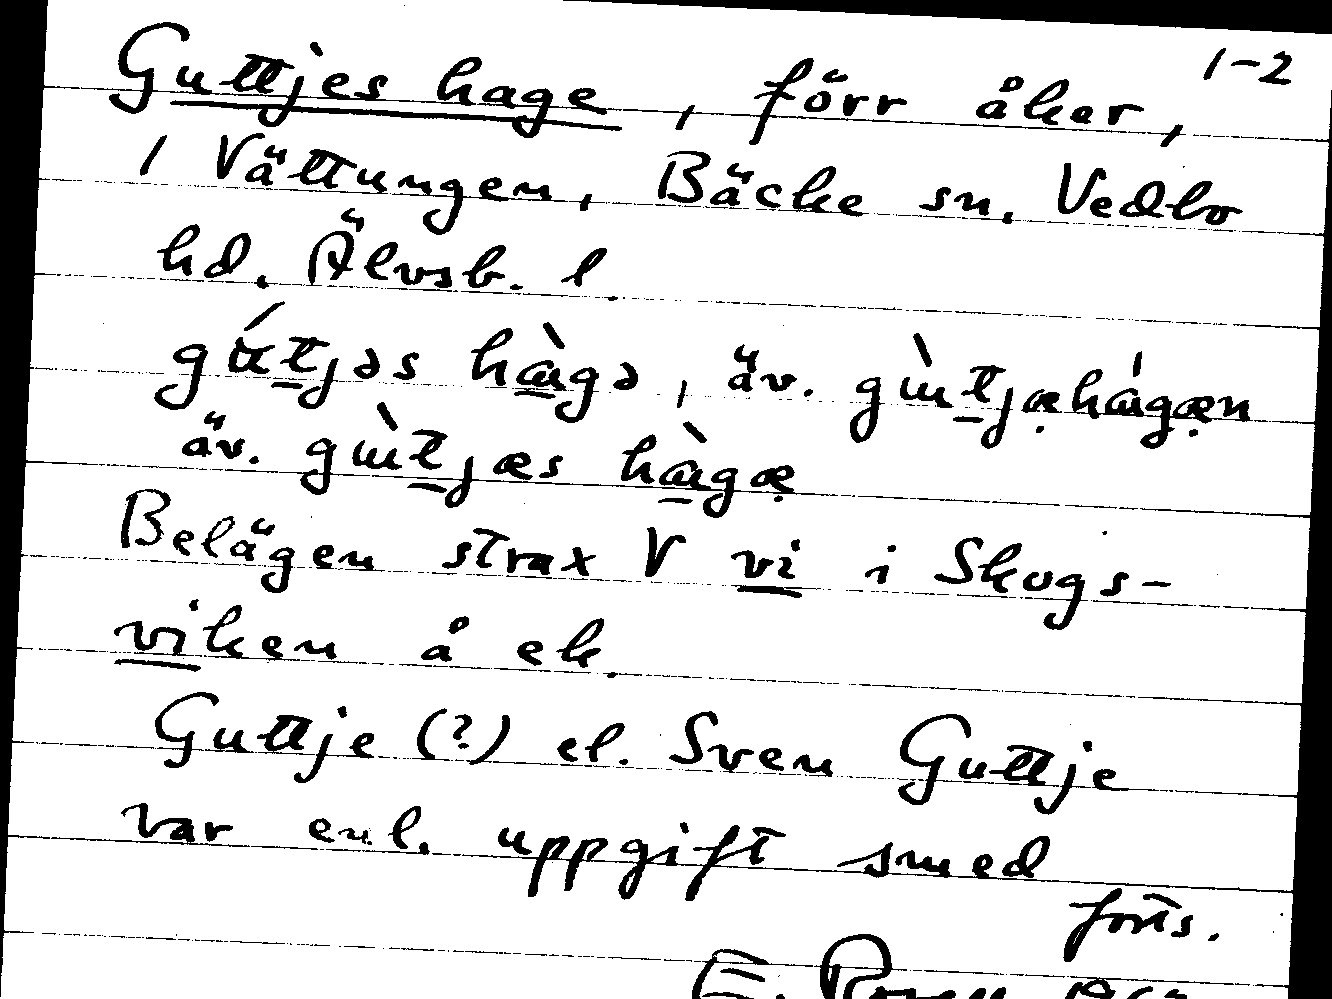 1-2
Guttjes hage, förr åker,
i Vättungen, Bäcke sn. Vedbo
hd. Älvsb. l.
gút̲jəs hà̲gə, äv. gùt̲jæ̣hágæ̣n
äv. gùt̲jæs hà̲gæ̣
Belägen strax V vi i Skogs-
viken å ek.
Guttje (?) el. Sven Guttje
var enl. uppgift smed
forts.